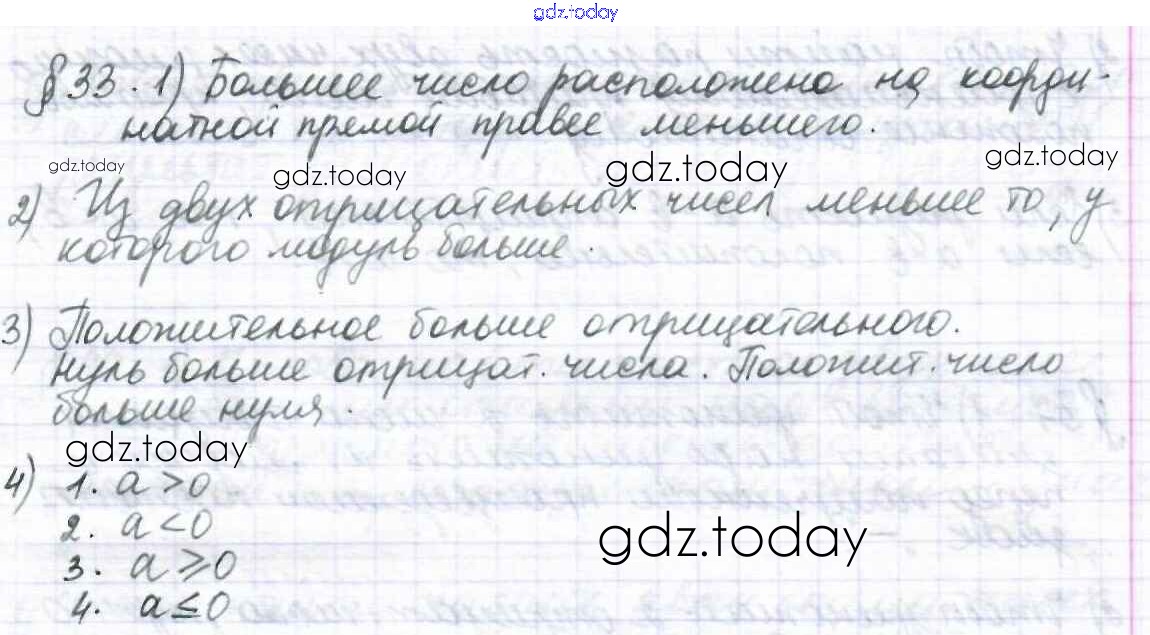 gdz.today
§ 33. 1) Большее число расположено на коорди-
натной прямой правее меньшего.
gdz.today gdz.today gdz.today gdz.today
2) Из двух отрицательных чисел меньше то, у
которого модуль больше.
3) Положительное больше отрицательного.
Нуль больше отрицат. числа. Положит. число
больше нуля.
gdz.today
4) 1. a > 0
2. a < 0
gdz.today
3. a ⩾ 0
4. a ≤ 0